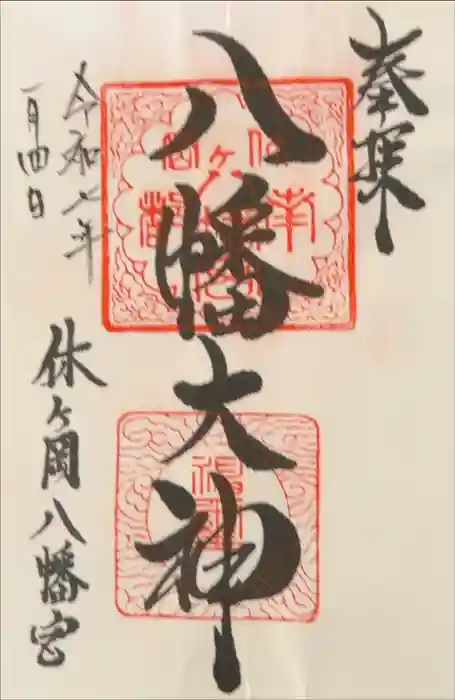 奉拝
八幡大神
令和七年
一月四日
休ヶ岡八幡宮